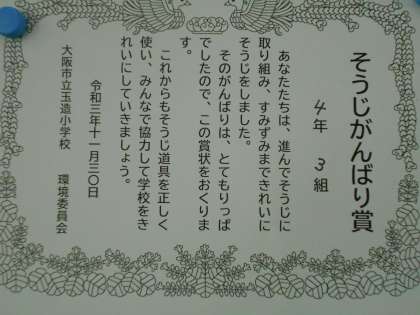 そうじがんばり賞
4年 3組
あなたたちは、進んでそうじに
取り組み、すみずみまできれいに
そうじをしました。
そのがんばりは、とてもりっぱ
でしたので、この賞状をおくりま
す。
これからもそうじ道具を正しく
使い、みんなで協力して学校をき
れいにしていきましょう。
令和三年十一月三〇日
大阪市立玉造小学校 環境委員会